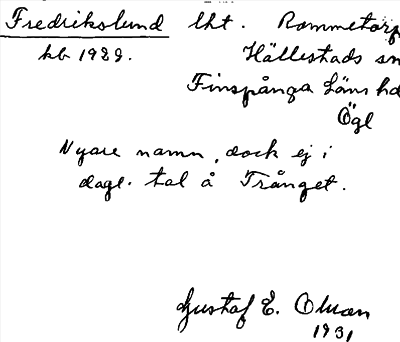 Fredrikslund lht. Rommetorp
kb 1929. Hällestads sn
Finspånga läns hd
Ögl
Nyare namn, dock ej i
dagl. tal å Trånget.
Gustaf E. Olman
1931